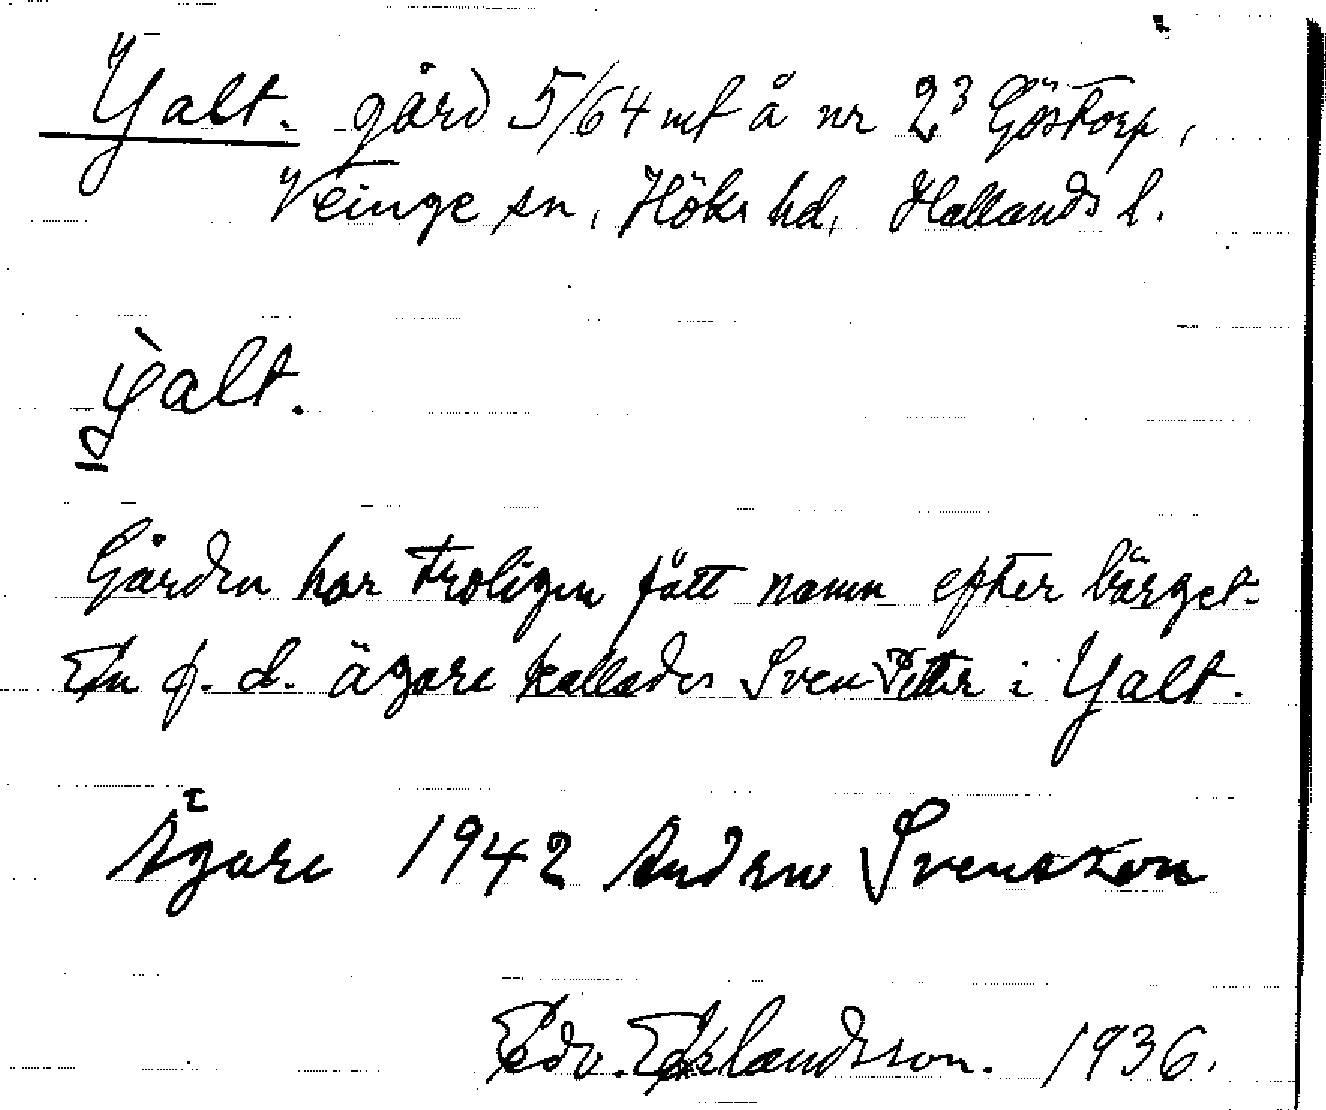 Yalt. gård 5/64 mt å nr 2³ Göstorp,
Veinge sn, Höks hd, Hallands l.
yalt.
Gården har troligen fått namn efter bärget.
En f. d. ägare kallades Sven Petter i Yalt.
Ägare 1942 Andrew Svensson
Edv. Erlandsson. 1936.